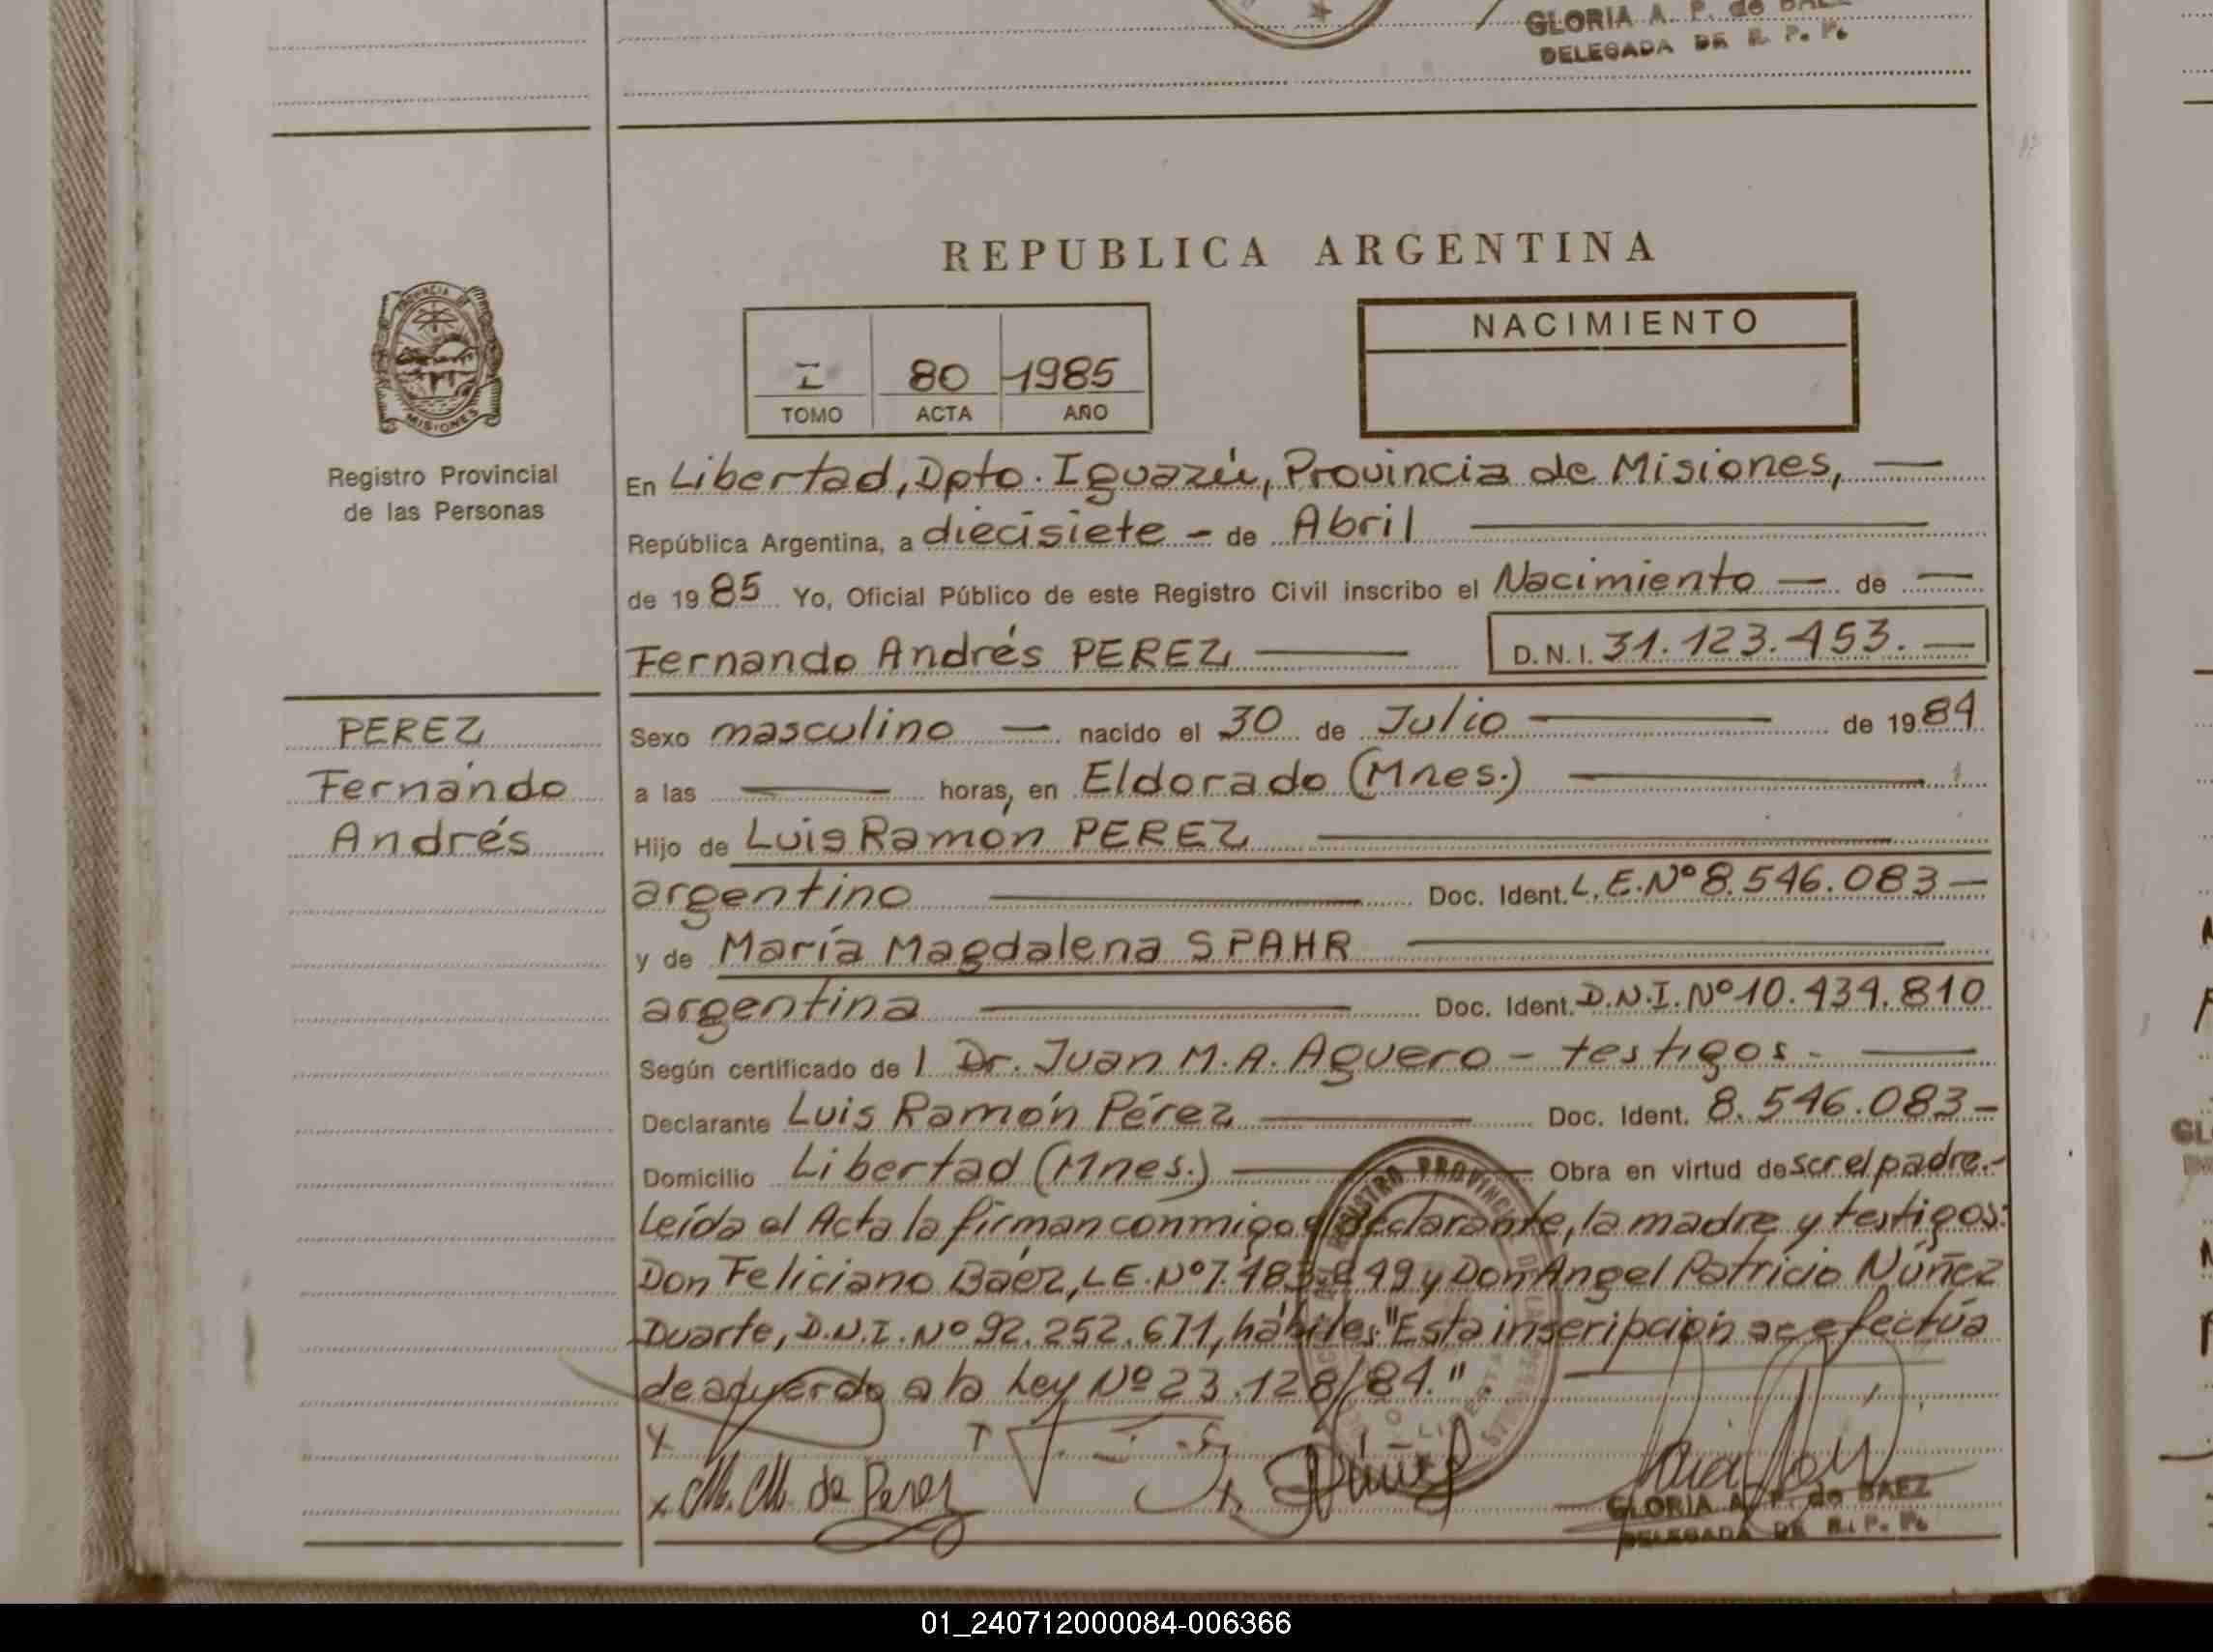 GLORIA A. P. de BAEZ
DELEGADA DE R. P. P.
REPUBLICA ARGENTINA
PROVINCIA DE
MISIONES
Registro Provincial
de las Personas
I 80 1985
TOMO ACTA AÑO
NACIMIENTO
En Libertad, Dpto. Iguazú, Provincia de Misiones, —
República Argentina, a diecisiete - de Abril —
de 1985 Yo, Oficial Público de este Registro Civil inscribo el Nacimiento — de —
Fernando Andrés PEREZ — D.N.I. 31.123.453. —
PEREZ
Fernando
Andrés
Sexo masculino — nacido el 30 de Julio — de 1984
a las — horas, en Eldorado (Mnes.) —
Hijo de Luis Ramón PEREZ —
argentino — Doc. Ident. L.E. Nº 8.546.083 —
y de María Magdalena SPAHR —
argentina — Doc. Ident. D.N.I. Nº 10.434.810
Según certificado de l Dr. Juan M. A. Aguero - testigos. —
Declarante Luis Ramón Pérez — Doc. Ident. 8.546.083 -
Domicilio Libertad (Mnes.) — Obra en virtud de ser el padre.-
Leída el Acta la firman conmigo el declarante, la madre y testigos:
Don Feliciano Báez, L.E. Nº 7.483.849 y Don Angel Patricio Núñez
Duarte, D.N.I. Nº 92.252.671, hábiles. "Esta inscripción se efectúa
de acuerdo a la Ley Nº 23.128/84."
x M. M. de Perez
GLORIA A. P. de BAEZ
DELEGADA DE R. P. P.
01_240712000084-006366